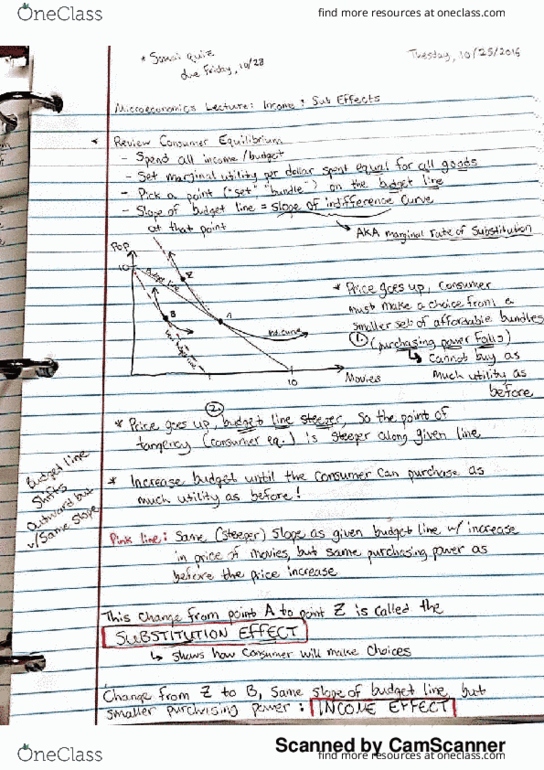 OneClass
find more resources at oneclass.com
* Sonai quiz
due Friday, 10/28
Tuesday, 10/25/2016
Microeconomics Lecture: Income & Sub Effects
* Review Consumer Equilibrium
- Spend all income/budget
- Set marginal utility per dollar spent equal for all goods
- Pick a point ("set" "bundle") on the budget line
- Slope of budget line = slope of indifference curve
at that point
AKA marginal rate of substitution
Pop
10
Budget line
Z
B
A
ind. curve
10
Movies
* Price goes up, consumer
must make a choice from a
smaller set of affordable bundles
1. (purchasing power falls)
cannot buy as
much utility as
before
2.
* Price goes up, budget line steeper, so the point of
tangency (consumer eq.) is steeper along given line
* Increase budget until the consumer can purchase as
much utility as before!
Budget line
shifts
outward but
w/same slope
Pink line: Same (steeper) slope as given budget line w/ increase
in price of movies, but same purchasing power as
before the price increase
This change from point A to point Z is called the
SUBSTITUTION EFFECT
↳ shows how consumer will make choices
Change from Z to B, same slope of budget line but
smaller purchasing power: INCOME EFFECT
Scanned by CamScanner
OneClass
find more resources at oneclass.com